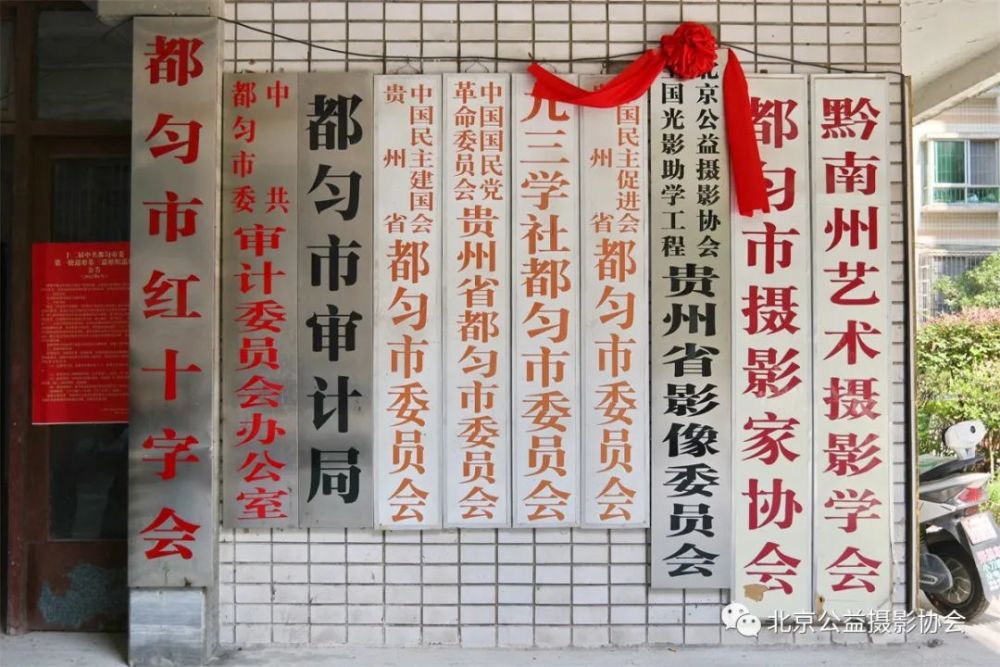 都匀市红十字会
中共
都匀市委
审计委员会办公室
都匀市审计局
中国民主建国会
贵州省
都匀市委员会
中国国民党
革命委员会
贵州省都匀市委员会
九三学社都匀市委员会
国民主促进会
州省
都匀市委员会
北京公益摄影协会
国光影助学工程
贵州省影像委员会
都匀市摄影家协会
黔南州艺术摄影学会
公告
北京公益摄影协会